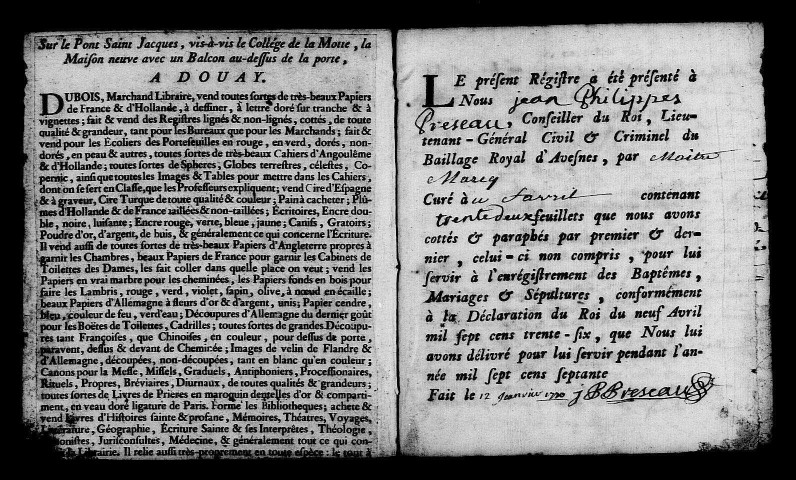 Sur le Pont Saint Jacques, vis-à-vis le Collége de la Motte, la
Maison neuve avec un Balcon au-dessus de la porte,
A DOUAY.
DUBOIS, Marchand Libraire, vend toutes sortes de très-beaux Papiers
de France & d'Hollande, à dessiner, à lettre doré sur tranche & à
vignettes; fait & vend des Registres lignés & non-lignés, cottés, de toute
qualité & grandeur, tant pour les Bureaux que pour les Marchands; fait &
vend pour les Écoliers des Portefeuilles en rouge, en verd, dorés, non-
dorés, en peau & autres, toutes sortes de très-beaux Cahiers d'Angoulême
& d'Hollande; toutes sortes de Spheres, Globes terrestres, célestes, Co-
pernic, ainsi que toutes les Images & Tables pour mettre dans les Cahiers,
dont on se sert en Classe, que les Professeurs expliquent; vend Cire d'Espagne
& à graveur, Cire Turque de toute qualité & couleur; Pain à cacheter; Plu-
mes d'Hollande & de France taillées & non-taillées; Écritoires, Encre dou-
ble, noire, luisante; Encre rouge, verte, bleue, jaune; Canifs, Gratoirs;
Poudre d'or, d'argent, de buis, & généralement ce qui concerne l'Écriture.
Il vend aussi de toutes sortes de très-beaux Papiers d'Angleterre propres à
garnir les Chambres, beaux Papiers de France pour garnir les Cabinets de
Toilettes des Dames, les fait coller dans quelle place on veut; vend les
Papiers en vrai marbre pour les cheminées, les Papiers fonds en bois pour
faire les Lambris, rouge, verd, violet, sapin, olive, à nœud en écaille;
beaux Papiers d'Allemagne à fleurs d'or & d'argent, unis; Papier cendre,
bleu, couleur de feu, verd'eau; Découpures d'Allemagne du dernier goût
pour les Boëtes de Toilettes, Cadrilles; toutes sortes de grandes Découpu-
res tant Françoises, que Chinoises, en couleur, pour dessus de porte,
paravent, dessus & devant de Cheminée; Images de velin de Flandre &
d'Allemagne, découpées, non-découpées, tant en blanc qu'en couleur;
Canons pour la Messe, Missels, Graduels, Antiphoniers, Processionaires,
Rituels, Propres, Bréviaires, Diurnaux, de toutes qualités & grandeurs;
toutes sortes de Livres de Prieres en maroquin dentelles d'or & comparti-
ment, en veau doré ligature de Paris. Forme les Bibliotheques; achete &
vend Livres d'Histoires sainte & profane, Mémoires, Théatres, Voyages,
Littérature, Géographie, Écriture Sainte & ses Interprêtes, Théologie,
Jurisconsultes, Médecine, & généralement tout ce qui con-
Librairie. Il relie aussi très-proprement en toute espèce: le tout à
LE présent Régistre a été présenté à
Nous jean Philippes
Preseau, Conseiller du Roi, Lieu-
tenant-Général Civil & Criminel du
Bailliage Royal d'Avesnes, par Maitre
Marcq
Curé à contenant
trente deux feuillets que nous avons
cottés & paraphés par premier & der-
nier, celui-ci non compris, pour lui
servir à l'enrégistrement des Baptêmes,
Mariages & Sépultures, conformément
à la Déclaration du Roi du neuf Avril
mil sept cens trente-six, que Nous lui
avons délivré pour lui servir pendant l'an-
née mil sept cens septante
Fait le 12 janvier 1770 JPPreseau